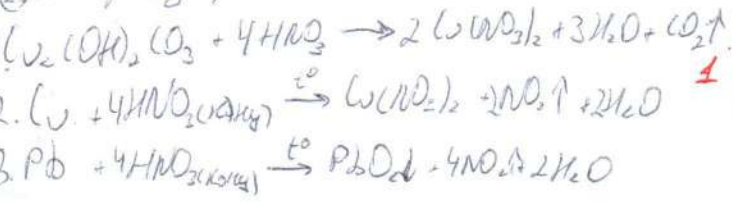 Cu₂(OH)₂CO₃ + 4HNO₃ → 2Cu(NO₃)₂ + 3H₂O + CO₂↑
1
2. Cu + 4HNO₃(конц) t° → Cu(NO₃)₂ + 2NO₂↑ + 2H₂O
3. Pb + 4HNO₃(конц) t° → PbO₂↓ + 4NO₂↑ + 2H₂O